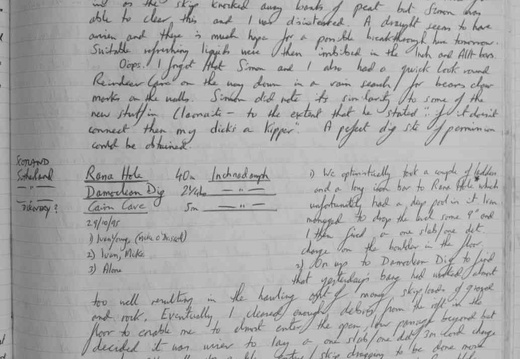 on the skip knocked away wants of peat but Simon was
able to clear this and I was disinterred. A draught seem to have
arisen and there is much hope for a possible breakthrough here tomorrow.
Suitable refreshing liquids were then imbibed in the Inch and Alt bars.
Oops, I forgot that Simon and I also had a quick look round
Reindeer Cave on the way down in a vain search for bears claw
marks on the walls. Simon did note its similarity to some of the
new stuff in Claonaite - to the extent that he stated "if it doesn't
connect then my dicks a Kipper". A pefect dig site of permission
could be obtained.
SCOTLAND
Sutherland
Rana Hole 40m Inchnadamph
Damoclean Dig 2½hrs
Cairn Cave 5m
29/10/95
1) Ivan Young
2) Ivan, Mike
3) Alone
1) We optimistically took a couple of ladders
and a long iron bar to Rana Hole which
unfortunately had a deep pool in it. Ivan
managed to drop the level some 9" and
I then fired a one slab/one det.
charge on the boulder in the floor.
2) On up to Damoclean Dig to find
that yesterdays bang had worked almost
too well resulting in the hauling out of many skip loads of gravel
and rock. Eventually I cleared enough debris from the roof and the
floor to enable me to almost enter the open, low passage beyond but
decided it was wiser to lay a one slab/one det. charge